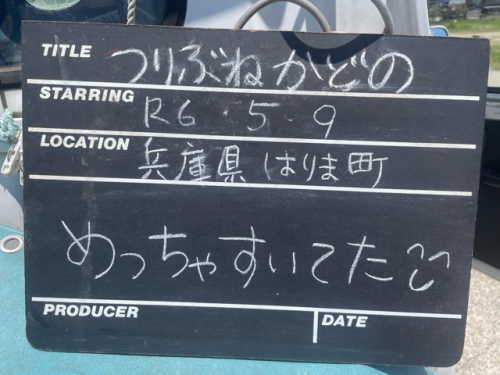 TITLE つりぶねかどの
STARRING R6.5.9
LOCATION 兵庫県はりま町
めっちゃすいてた
PRODUCER
DATE